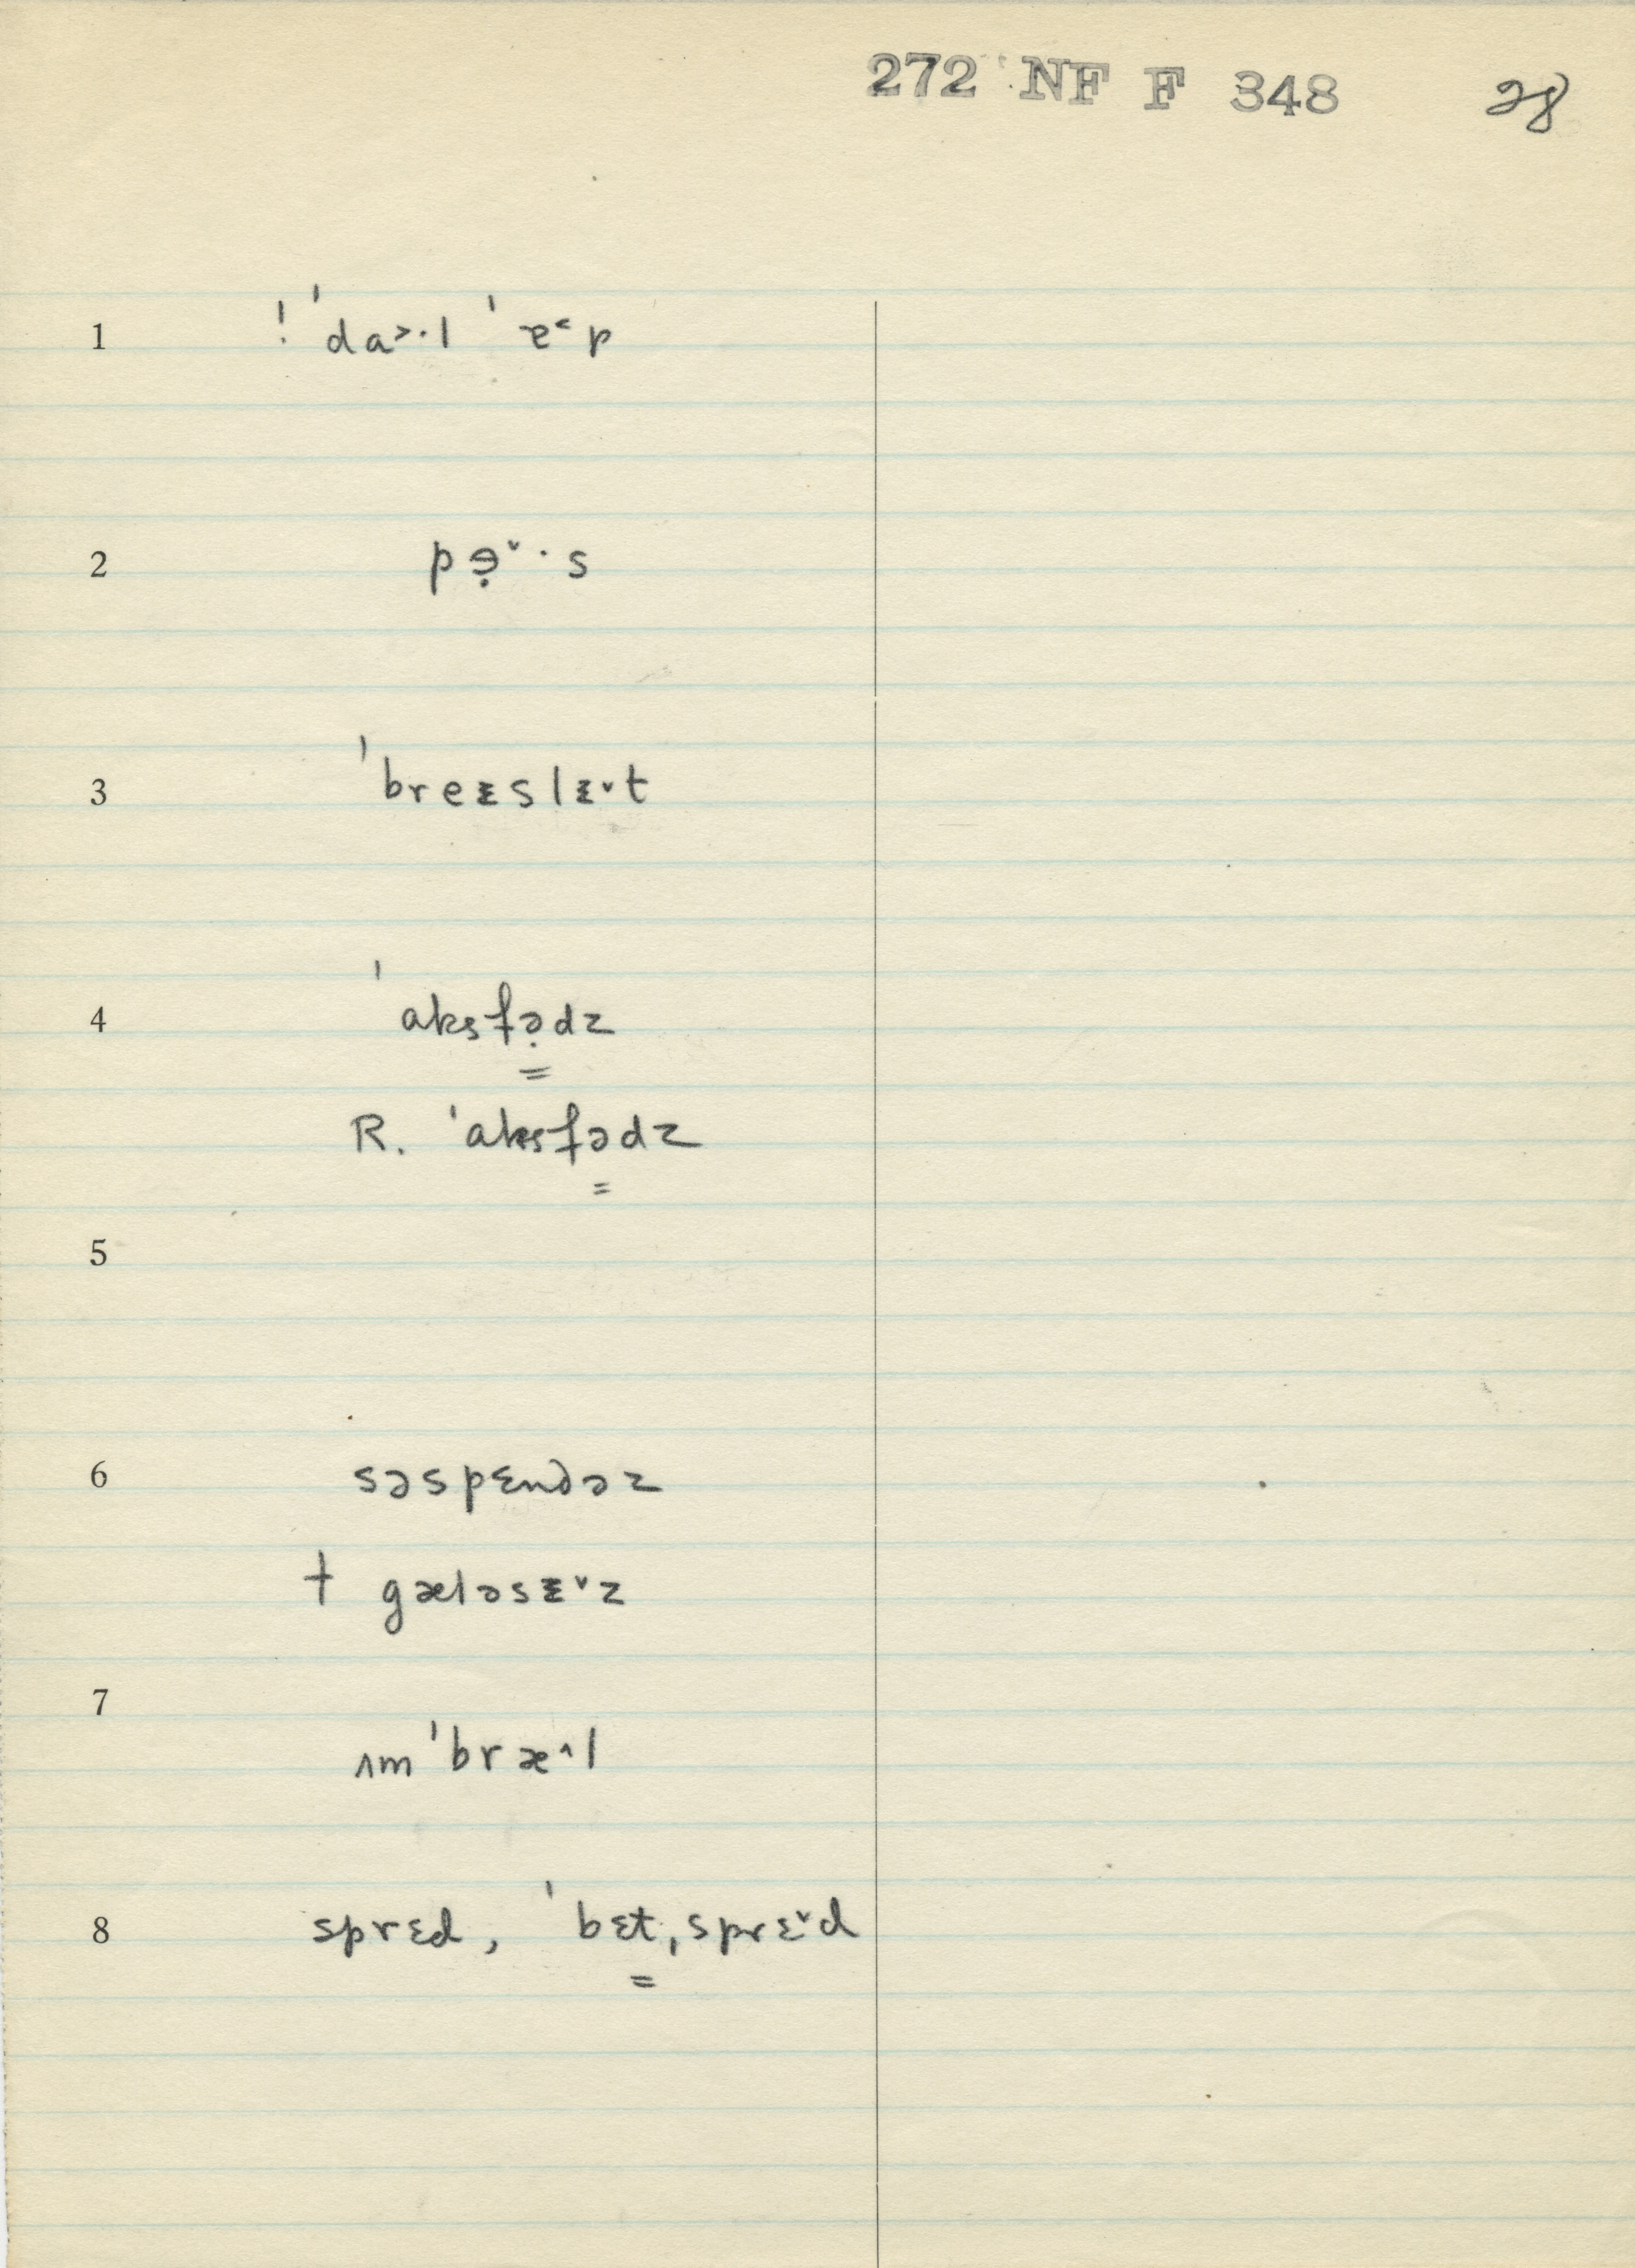 272 NF F 348 28
1 ! ˈda˃·l ˈɐ˂p
2 pɘ̣ˇ·s
3 ˈbreᵻslᵻˇt
4 ˈaksfə̣dz
R. ˈaksfədz
5
6 səspɛndəz
† gæləsᵻˇz
7
ʌmˈbræ^l
8 sprɛd, ˈbɛtˌsprɛˇd